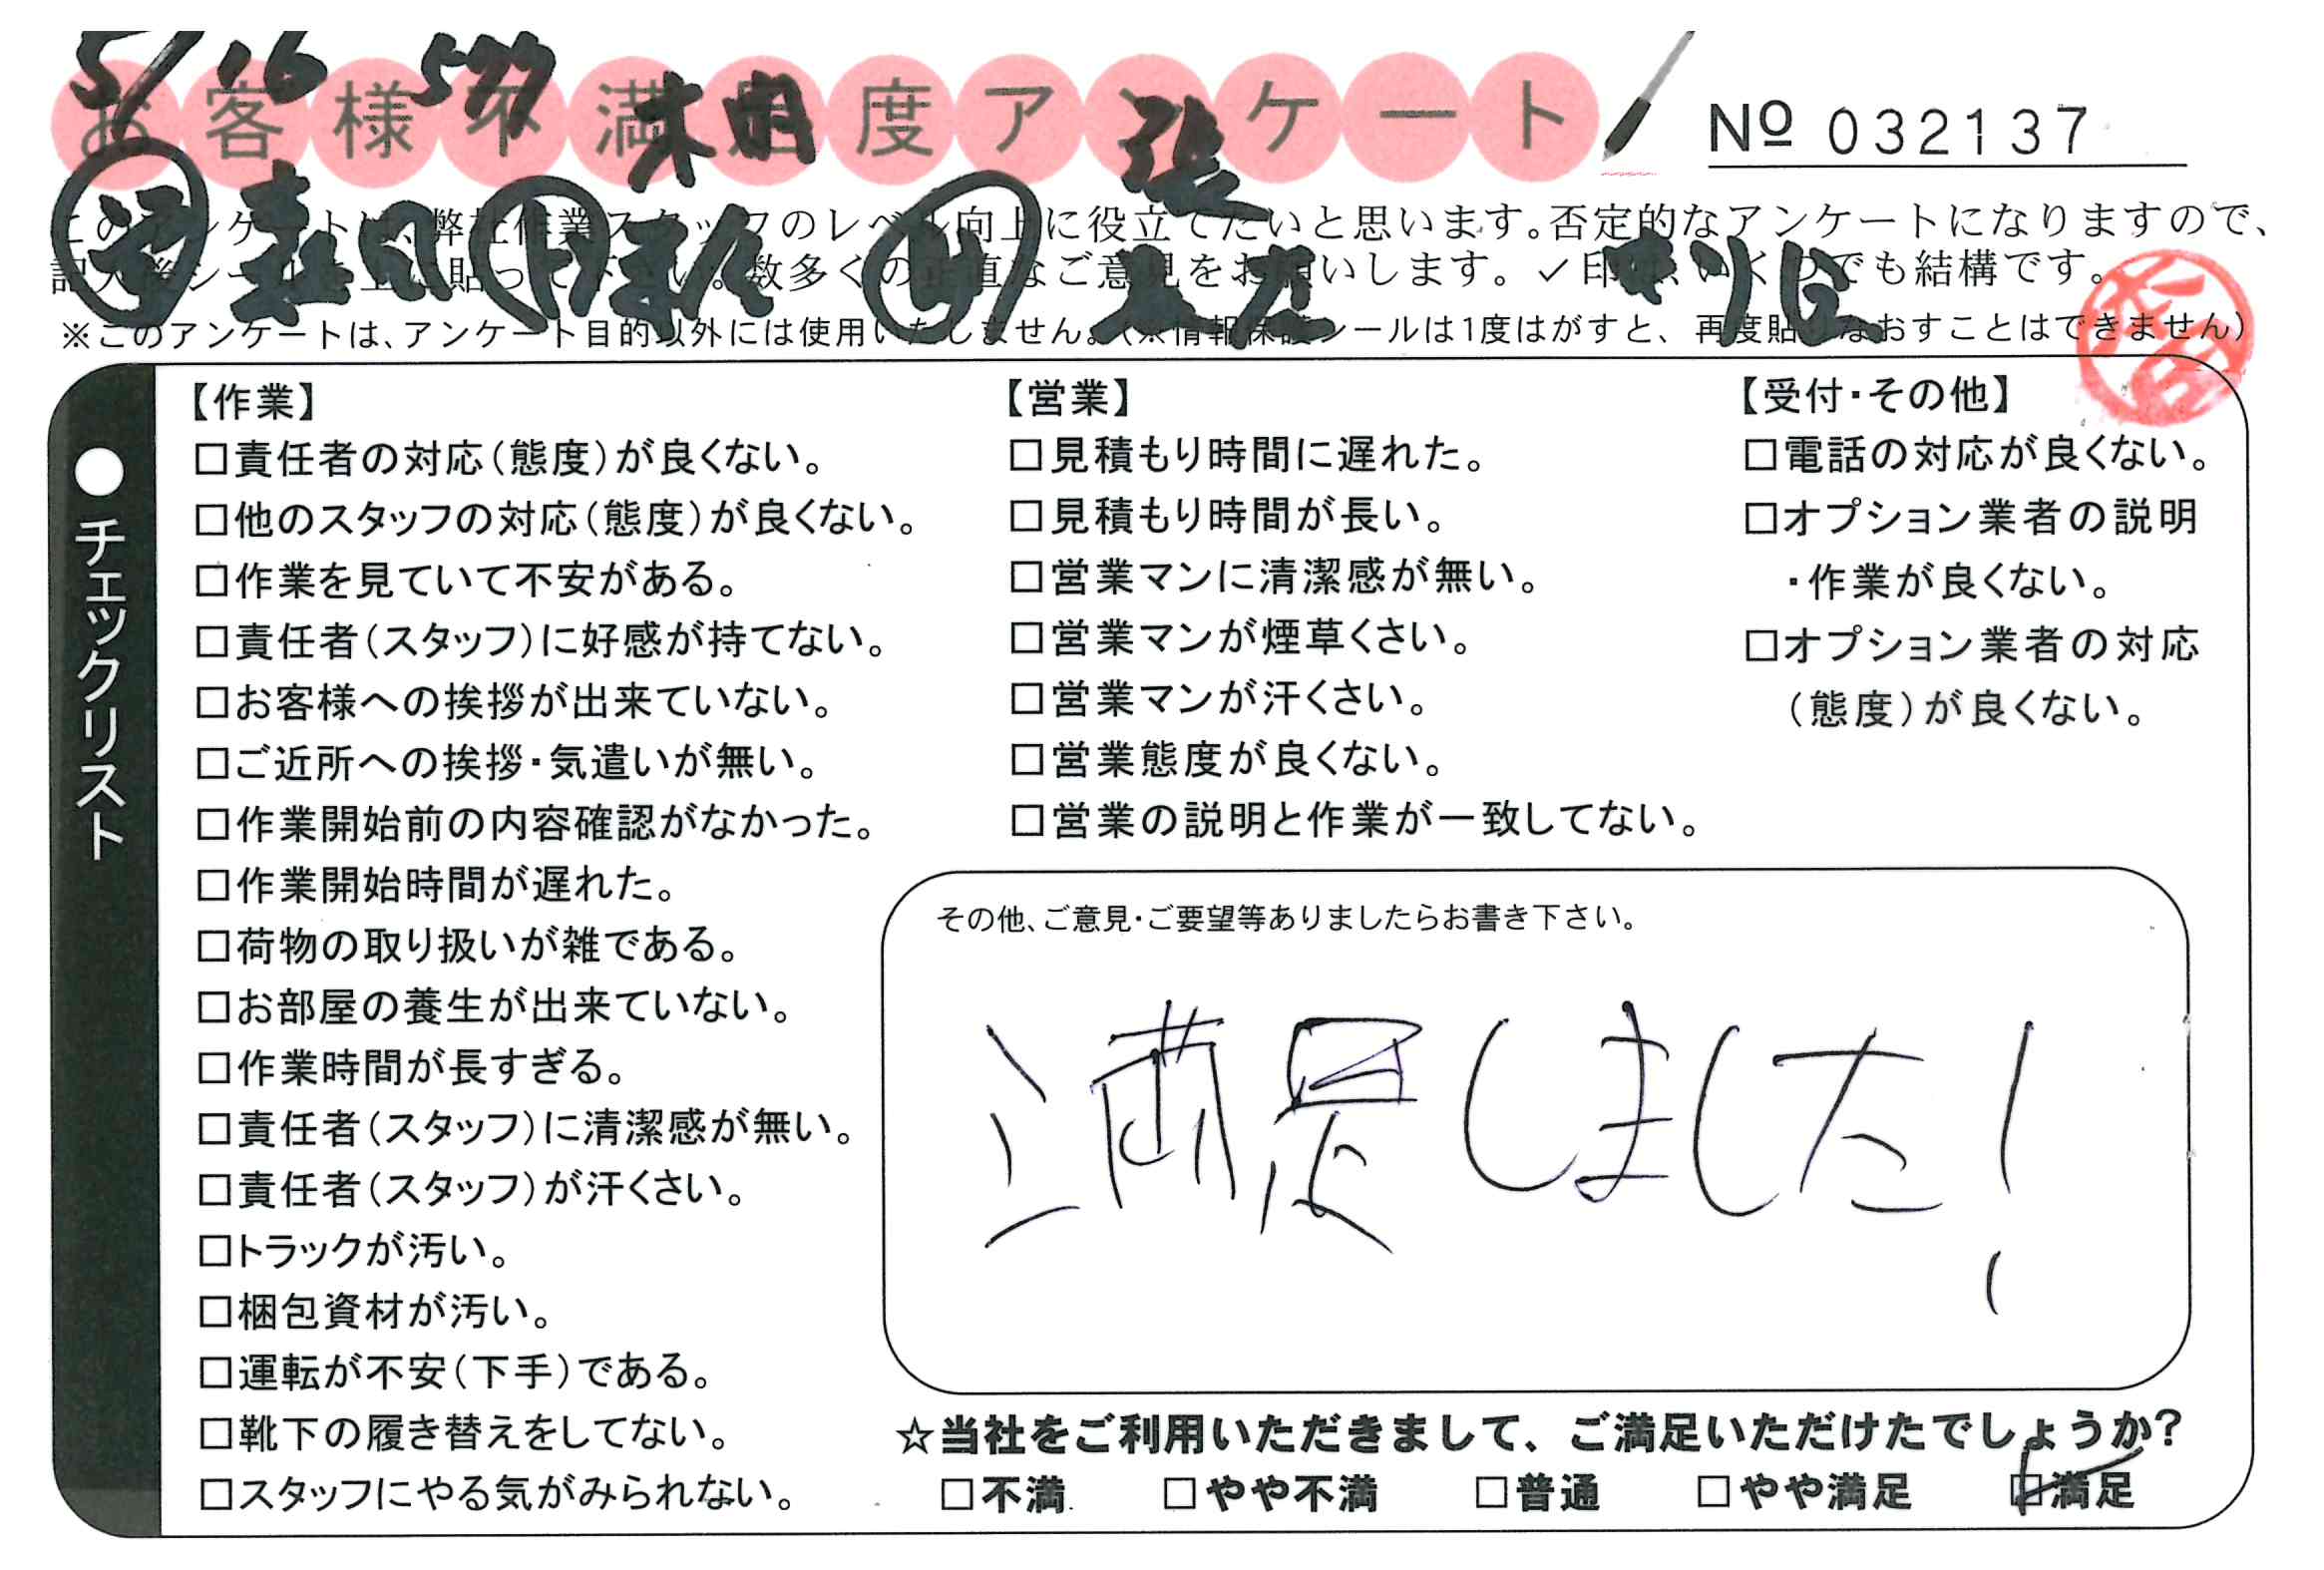 5/16 577 木田
お客様不満足度アンケート
No 032137
このアンケートは、弊社作業スタッフのレベル向上に役立てたいと思います。否定的なアンケートになりますので、
記入後シールを上に貼って下さい。数多くの正直なご意見をお願いします。✓印は、いくつでも結構です。
※このアンケートは、アンケート目的以外には使用いたしません。(※情報保護シールは1度はがすと、再度貼りなおすことはできません)
●チェックリスト
【作業】
□責任者の対応(態度)が良くない。
□他のスタッフの対応(態度)が良くない。
□作業を見ていて不安がある。
□責任者(スタッフ)に好感が持てない。
□お客様への挨拶が出来ていない。
□ご近所への挨拶・気遣いが無い。
□作業開始前の内容確認がなかった。
□作業開始時間が遅れた。
□荷物の取り扱いが雑である。
□お部屋の養生が出来ていない。
□作業時間が長すぎる。
□責任者(スタッフ)に清潔感が無い。
□責任者(スタッフ)が汗くさい。
□トラックが汚い。
□梱包資材が汚い。
□運転が不安(下手)である。
□靴下の履き替えをしてない。
□スタッフにやる気がみられない。
【営業】
□見積もり時間に遅れた。
□見積もり時間が長い。
□営業マンに清潔感が無い。
□営業マンが煙草くさい。
□営業マンが汗くさい。
□営業態度が良くない。
□営業の説明と作業が一致してない。
【受付・その他】
□電話の対応が良くない。
□オプション業者の説明
・作業が良くない。
□オプション業者の対応
(態度)が良くない。
その他、ご意見・ご要望等ありましたらお書き下さい。
満足しました!
☆当社をご利用いただきまして、ご満足いただけたでしょうか?
□不満 □やや不満 □普通 □やや満足 ☑満足